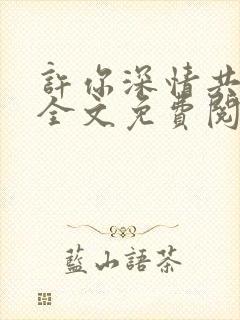 許你深情共
全文免費閱
藍山語茶